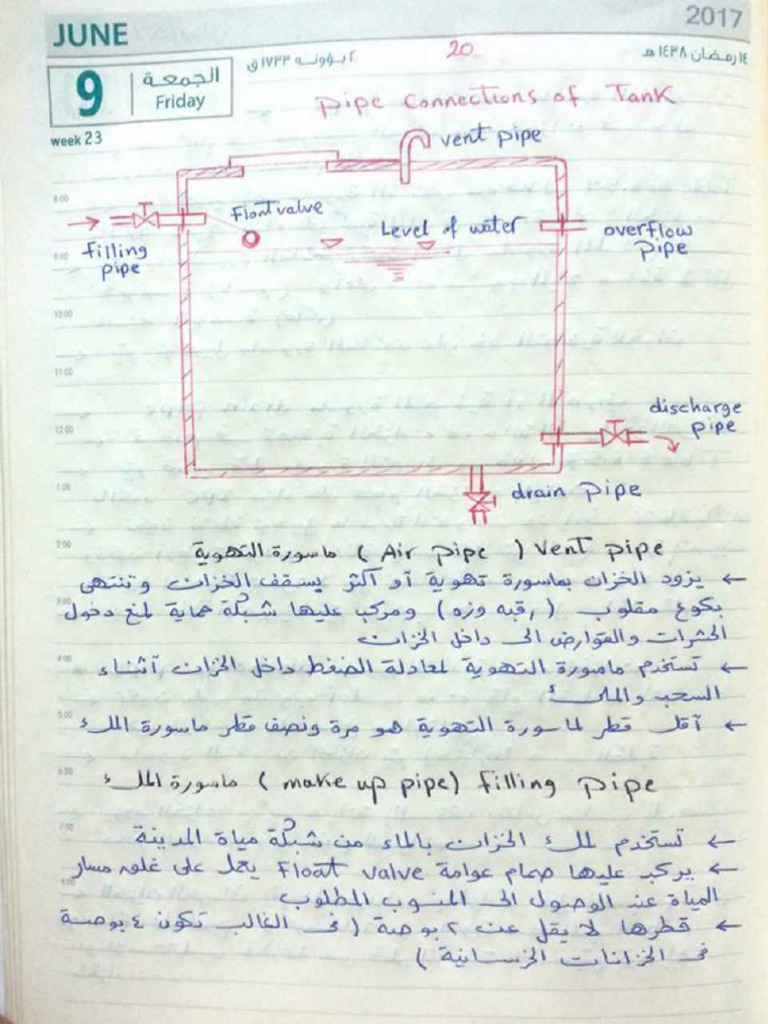 2017
JUNE
9
الجمعة
Friday
week 23
٢ بؤونه ١٧٣٣ ق
20
١٤ رمضان ١٤٣٨ هـ
pipe connections of Tank
vent pipe
Float valve
Level of water
filling
pipe
overflow
pipe
discharge
pipe
drain pipe
8:00
9:00
10:00
11:00
12:00
1:00
2:00
3:00
4:00
5:00
6:00
7:00
vent pipe ( Air pipe ) ماسورة التهوية
← يزود الخزان بماسورة تهوية أو أكثر بسقف الخزان وتنتهى
بكوع مقلوب ( رقبه وزه ) ومركب عليها شبكة حماية لمنع دخول
الحشرات والقوارض الى داخل الخزان
← تستخدم ماسورة التهوية لمعادلة الضغط داخل الخزان أثناء
السحب والملئ
← أقل قطر لماسورة التهوية هو مرة ونصف قطر ماسورة الملئ
filling pipe (make up pipe) ماسورة الملئ
← تستخدم لملئ الخزان بالماء من شبكة مياة المدينة
← يركب عليها صمام عوامة Float valve يعمل على غلق مسار
المياة عند الوصول الى المنسوب المطلوب
← قطرها لا يقل عن ٢ بوصة ( فى الغالب تكون ٤ بوصة
فى الخزانات الخرسانية )